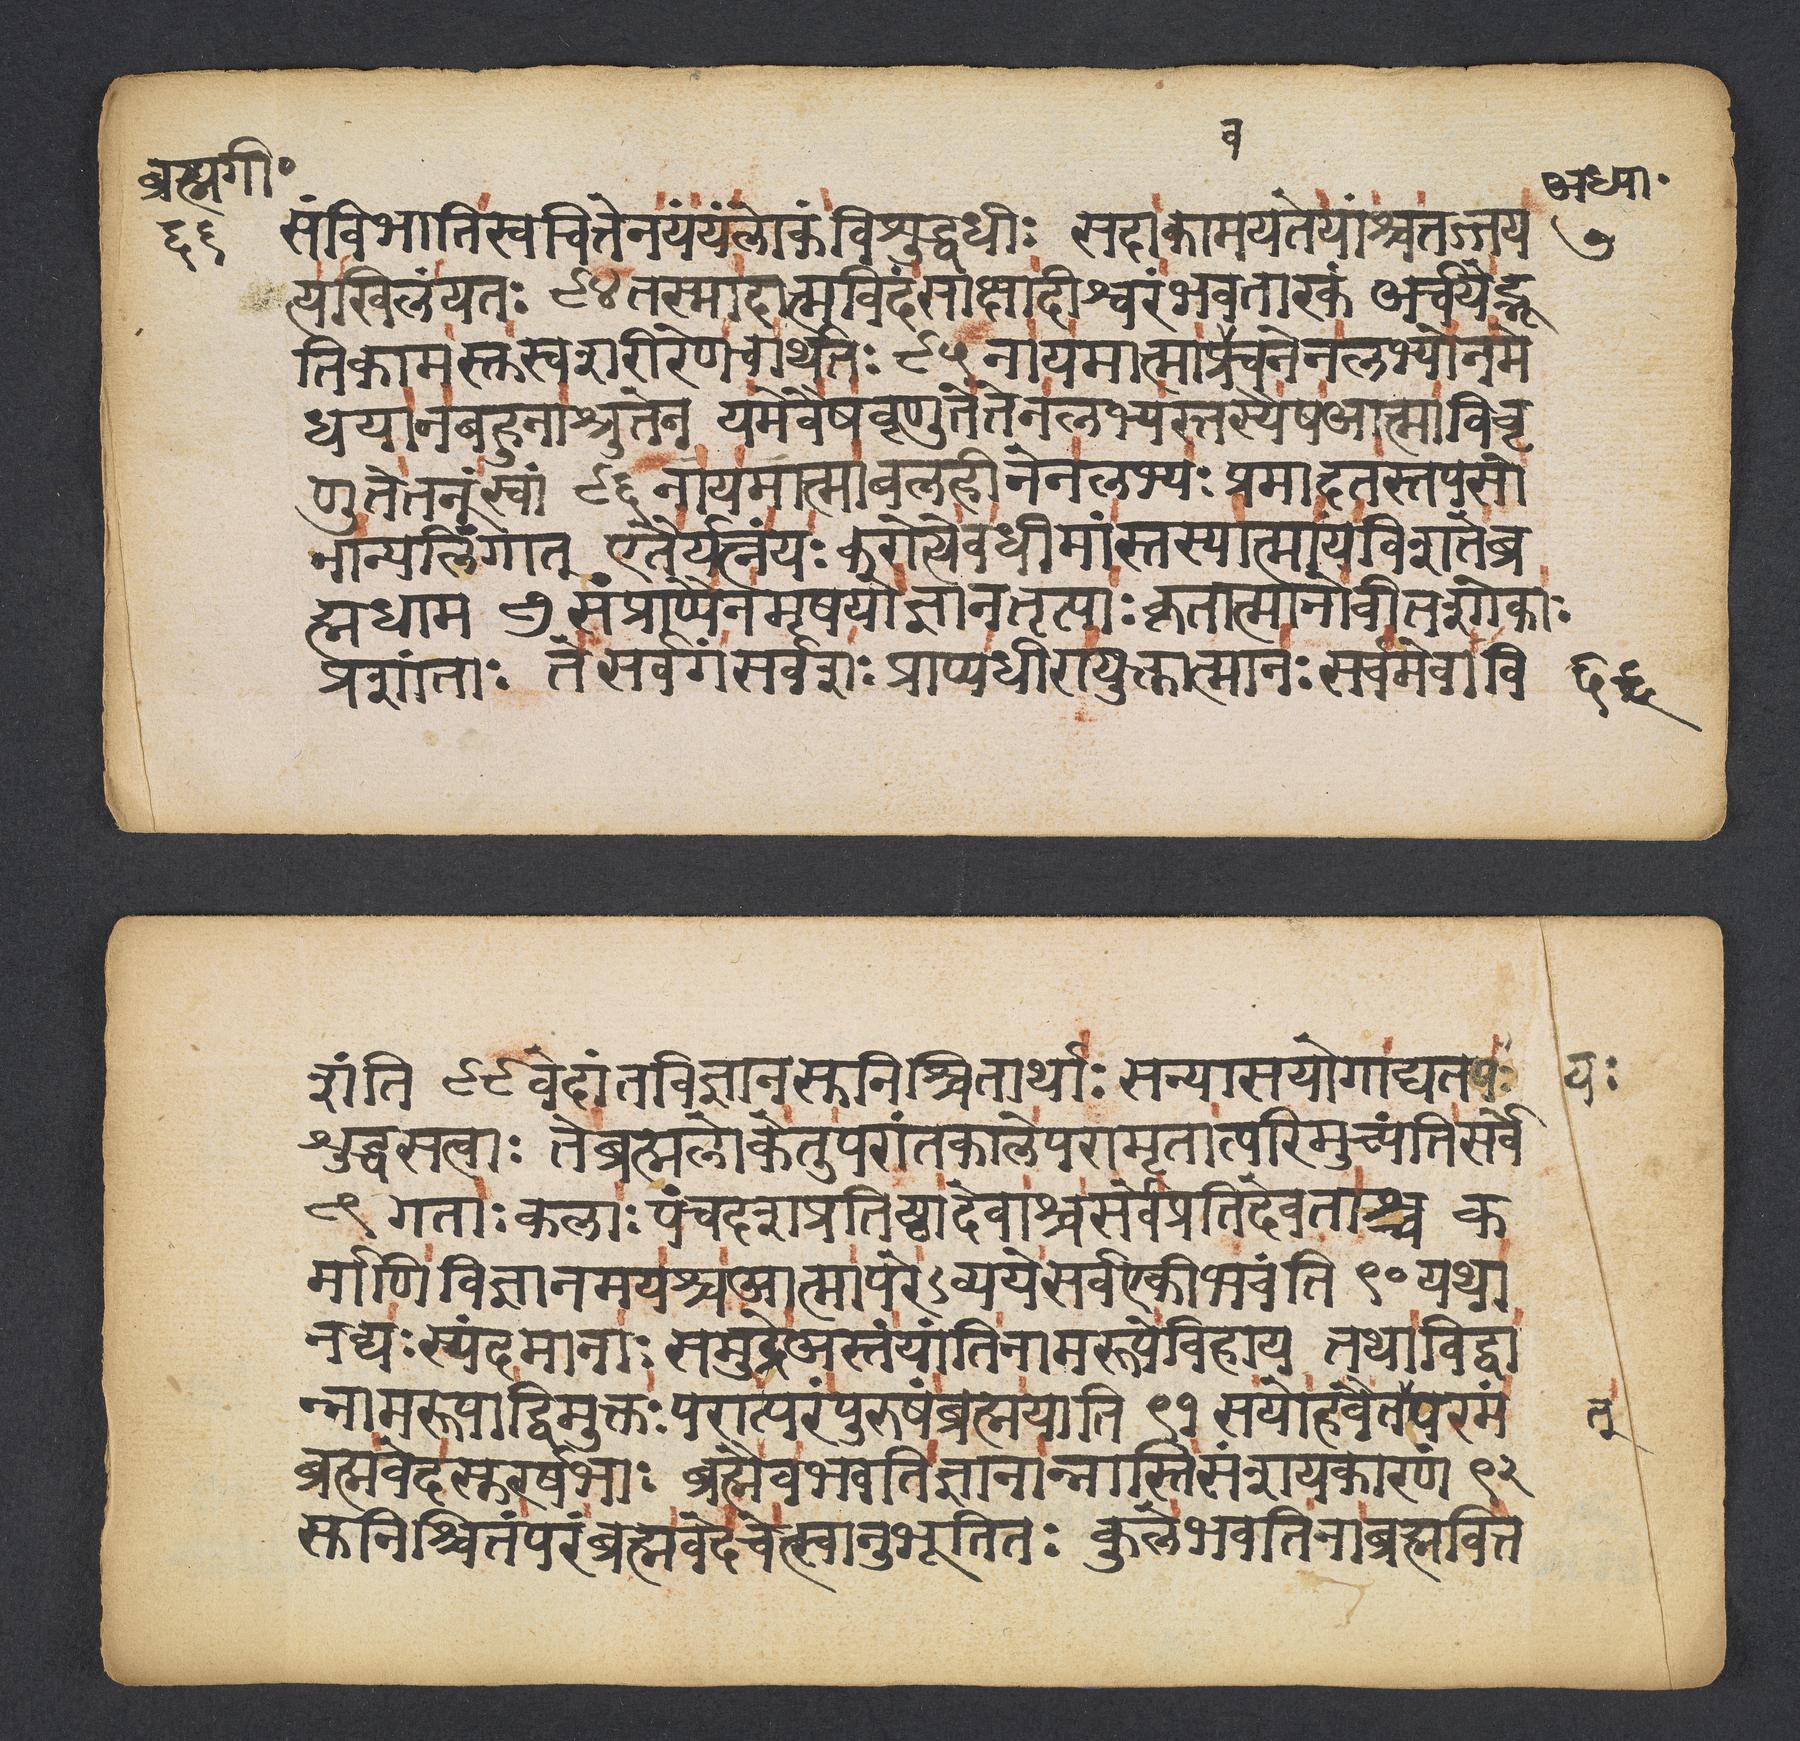 व
ब्रह्मगी॰
अध्या॰
६६
७
संविभातिस्वचित्तेनयंयंलोकंविशुद्धधीः सदाकामयतेयांश्चतज्जय
त्यखिलंयतः ८४ तस्मादात्मविदंसाक्षादीश्वरंभवतारकं अर्चयेद्भू
तिकामस्तुस्वशरीरेणचार्थतः ८५ नायमात्माप्रचनेनलभ्योनमे
धयानबहुनाश्रुतेन यमेवैषवृणुतेतेनलभ्यस्तस्यैषआत्माविवृ
णुतेतनूंस्वां ८६ नायमात्माबलहीनेनलभ्यः प्रमादतस्तपसो
नान्यलिंगात् एतैर्यत्नंयः करोत्येवधीमांस्तस्यात्मायंविशतेब्र
ह्मधाम ७ संप्राप्यैनमृषयोज्ञानतृप्ताः कृतात्मानोवीतशोकाः
प्रशांताः तेसर्वगंसर्वशः प्राप्यधीरायुक्तात्मानः सर्वमेवावि
६६
शंति ८८ वेदांतविज्ञानसुनिश्चितार्थाः सन्यासयोगाद्यत यः
शुद्धसत्वाः तेब्रह्मलोकेतुपरांतकालेपरामृतात्परिमुच्यंतिसर्वे
८९ गताः कलाः पंचदशप्रतिष्ठादेवाश्चसर्वेप्रतिदेवताश्च क
र्माणिविज्ञानमयश्चआत्मापरेऽव्ययेसर्वएकीभवंति ९० यथा
नद्यः स्यंदमानाः समुद्रेअस्तंयांतिनामरूपेविहाय तथाविद्वा
न्नामरूपाद्विमुक्तः परात्परंपुरुषंब्रह्मयाति ९१ सयोहवैतपरमं
त्
ब्रह्मवेदसुरर्षभाः ब्रह्मैवभवतिज्ञानान्नास्तिसंशयकारणं ९२
सुनिश्चितंपरंब्रह्मवेदचेत्स्वानुभूतितः कुलेभवतिनाब्रह्मवित्त